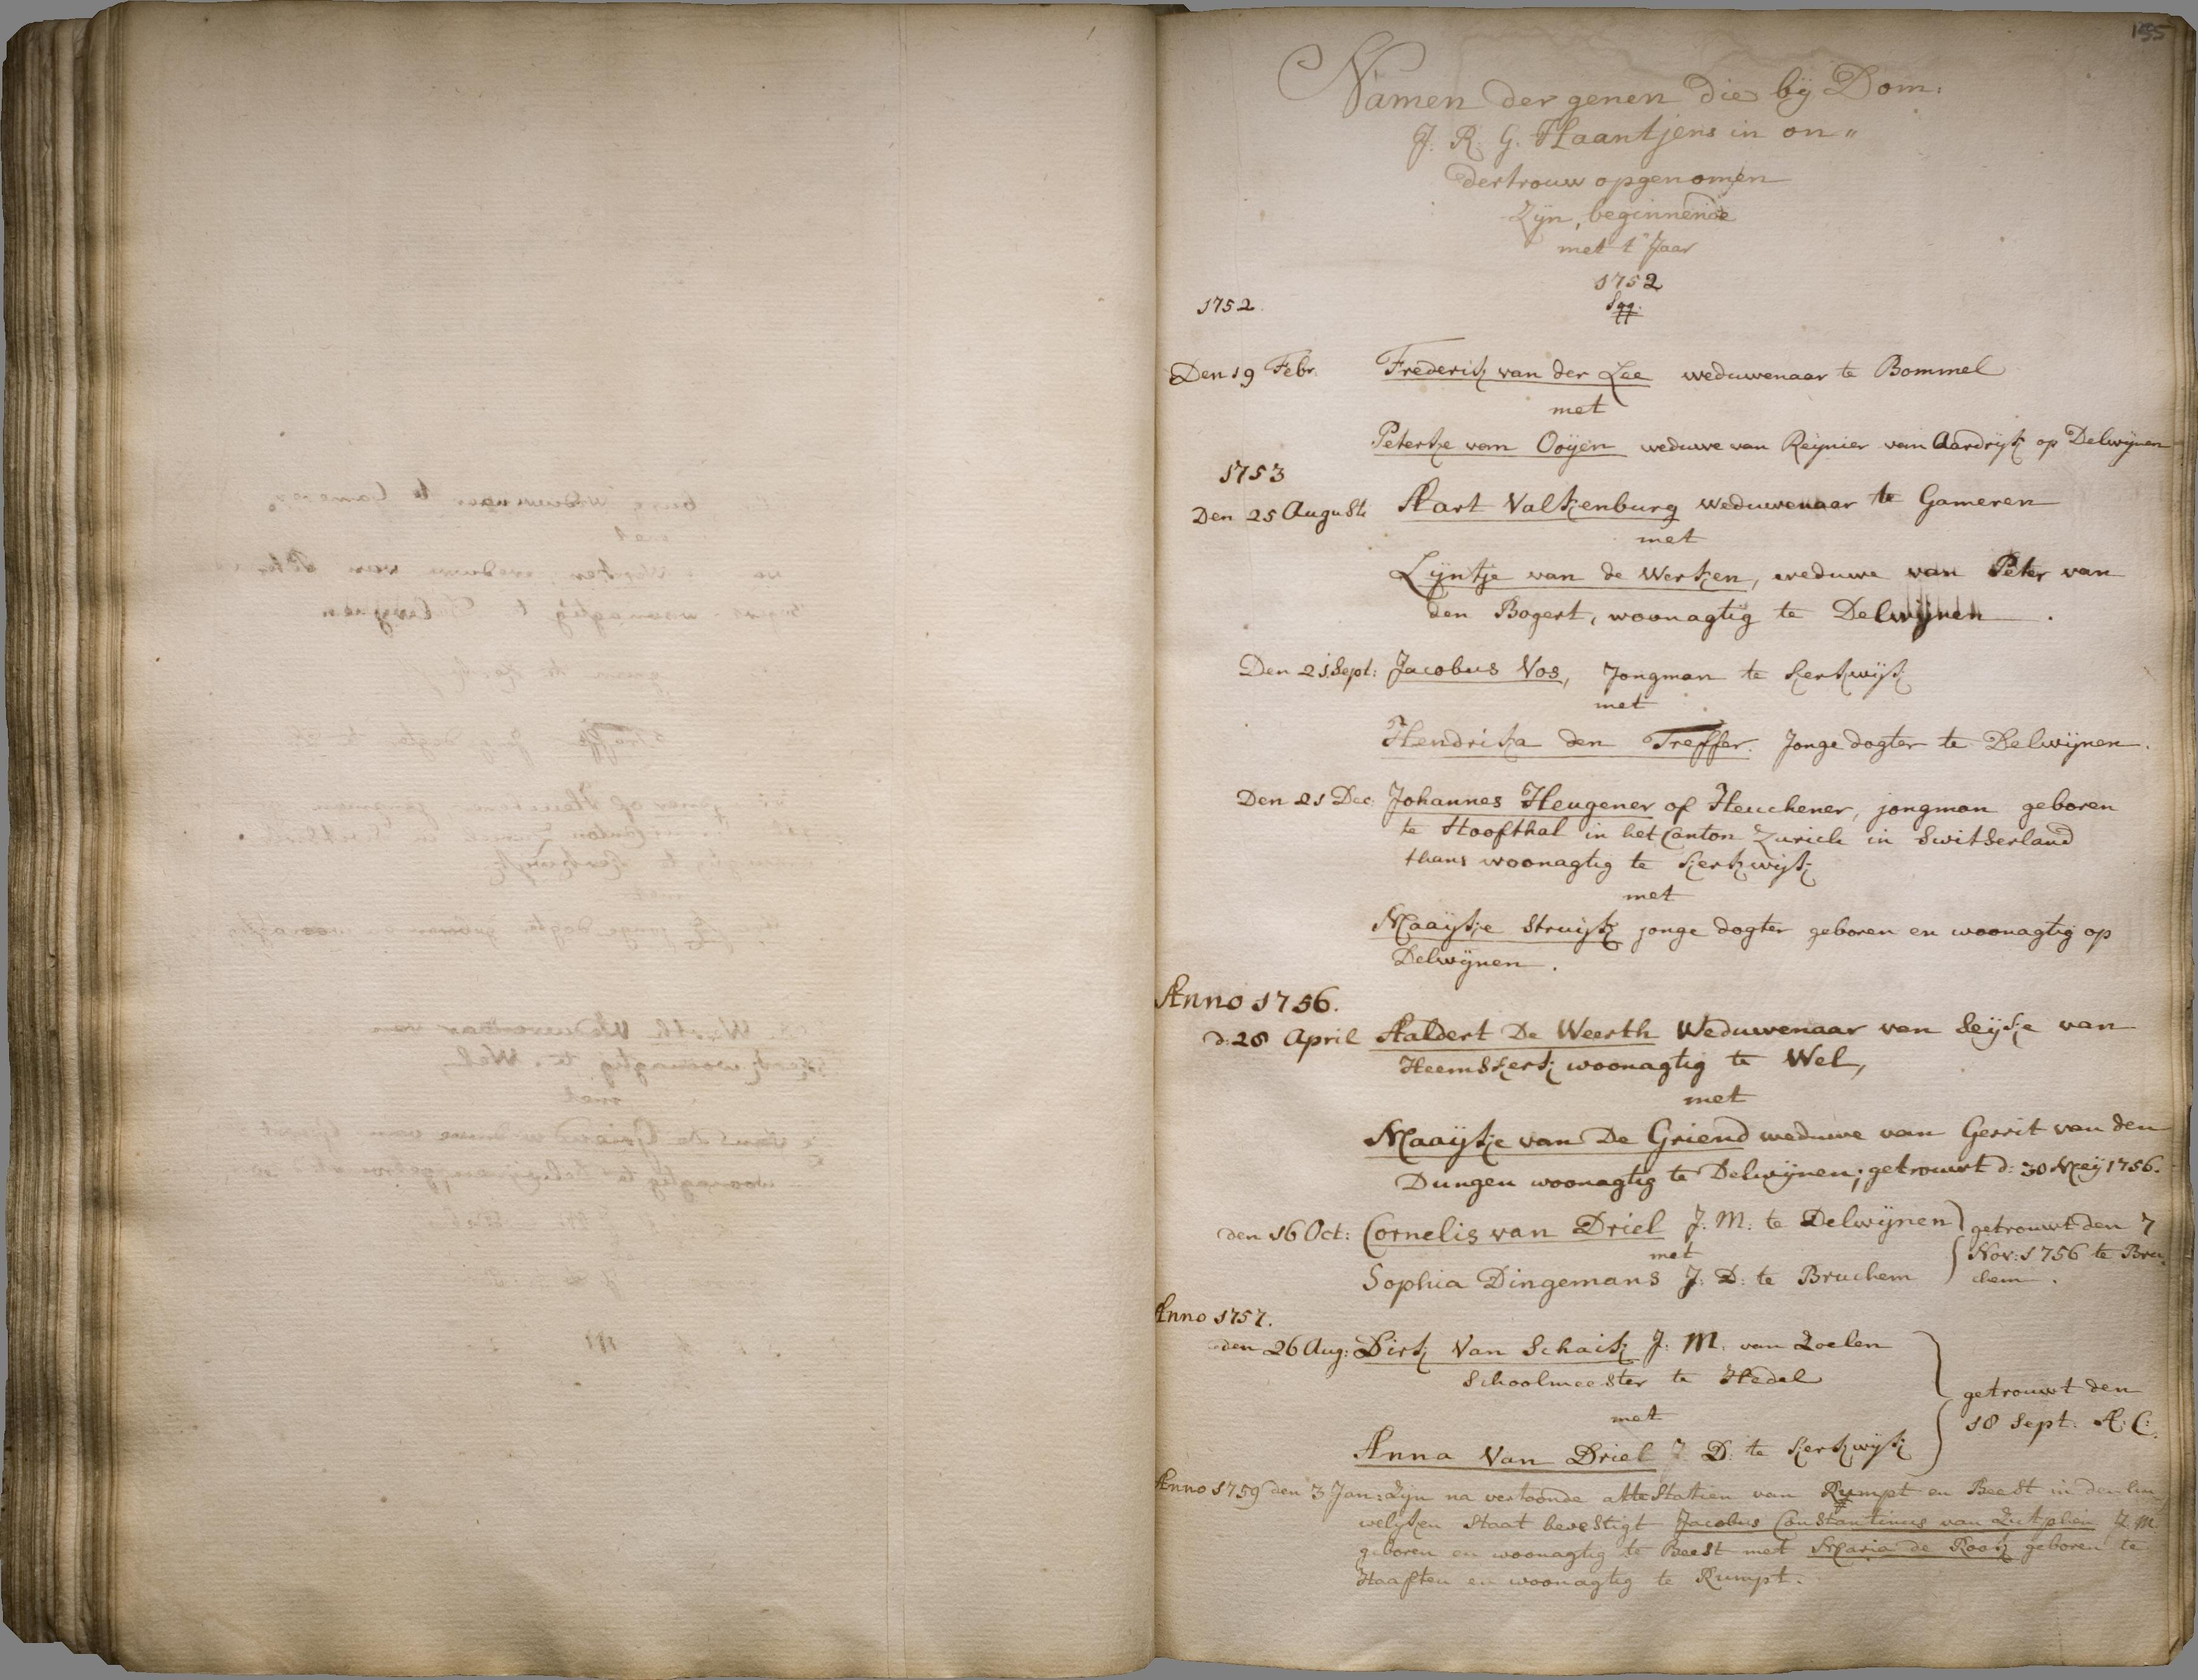 155
Namen der genen die bij Dom:
J. R. G. Haantjens in on„
dertrouw opgenomen
Zijn, beginnende
met 't Jaar
1752
sqq:
1752.
Den 19 Febr. Frederik van der Lee weduwenaar te Bommel
met
Peterke van Ooijen weduwe van Reijnier van Aardrijk op Delwijnen
1753
Den 25 Augusti Aart Valkenburg weduwenaar te Gameren
met
Lijntje van de Werken, weduwe van Peter van
den Bogert, woonagtig te Delwijnen.
Den 21 Sept: Jacobus Vos, Jongman te Kerkwijk
met
Hendrika den Treffer. Jonge dogter te Delwijnen.
Den 21 Dec: Johannes Heugener of Heuchener, jongman geboren
te Hoofthal in het Canton Zurich in Switserland
thans woonagtig te Kerkwijk
met
Maayke Struijk jonge dogter geboren en woonagtig op
Delwijnen.
Anno 1756.
d: 28 April Aaldert De Weerth Weduwenaar van Seijke van
Heemskerk woonagtig te Wel,
met
Maayke van De Griend weduwe van Gerrit van den
Dungen woonagtig te Delwijnen; getrouwt d: 30 Meij 1756.
den 16 Oct: Cornelis van Driel J. M: te Delwijnen getrouwt den 7
met Nov: 1756 te Bru-
Sophia Dingemans J: D: te Bruchem chem.
Anno 1757.
den 26 Aug: Dirk Van Schaik J: M. van Zoelen
Schoolmeester te Hedel
getrouwt den
met 18 Sept. A: C:
Anna Van Driel J. D. te Kerkwijk
Anno 1759 den 3 Jan: Zijn na vertoonde attestatien van Rumpt en Beest in den hu
welyken staat bevestigt Jacobus Constantinus van Zutphen J. M.
geboren en woonagtig te Beest met Maria de Rook geboren te
Haaften en woonagtig te Rumpt.